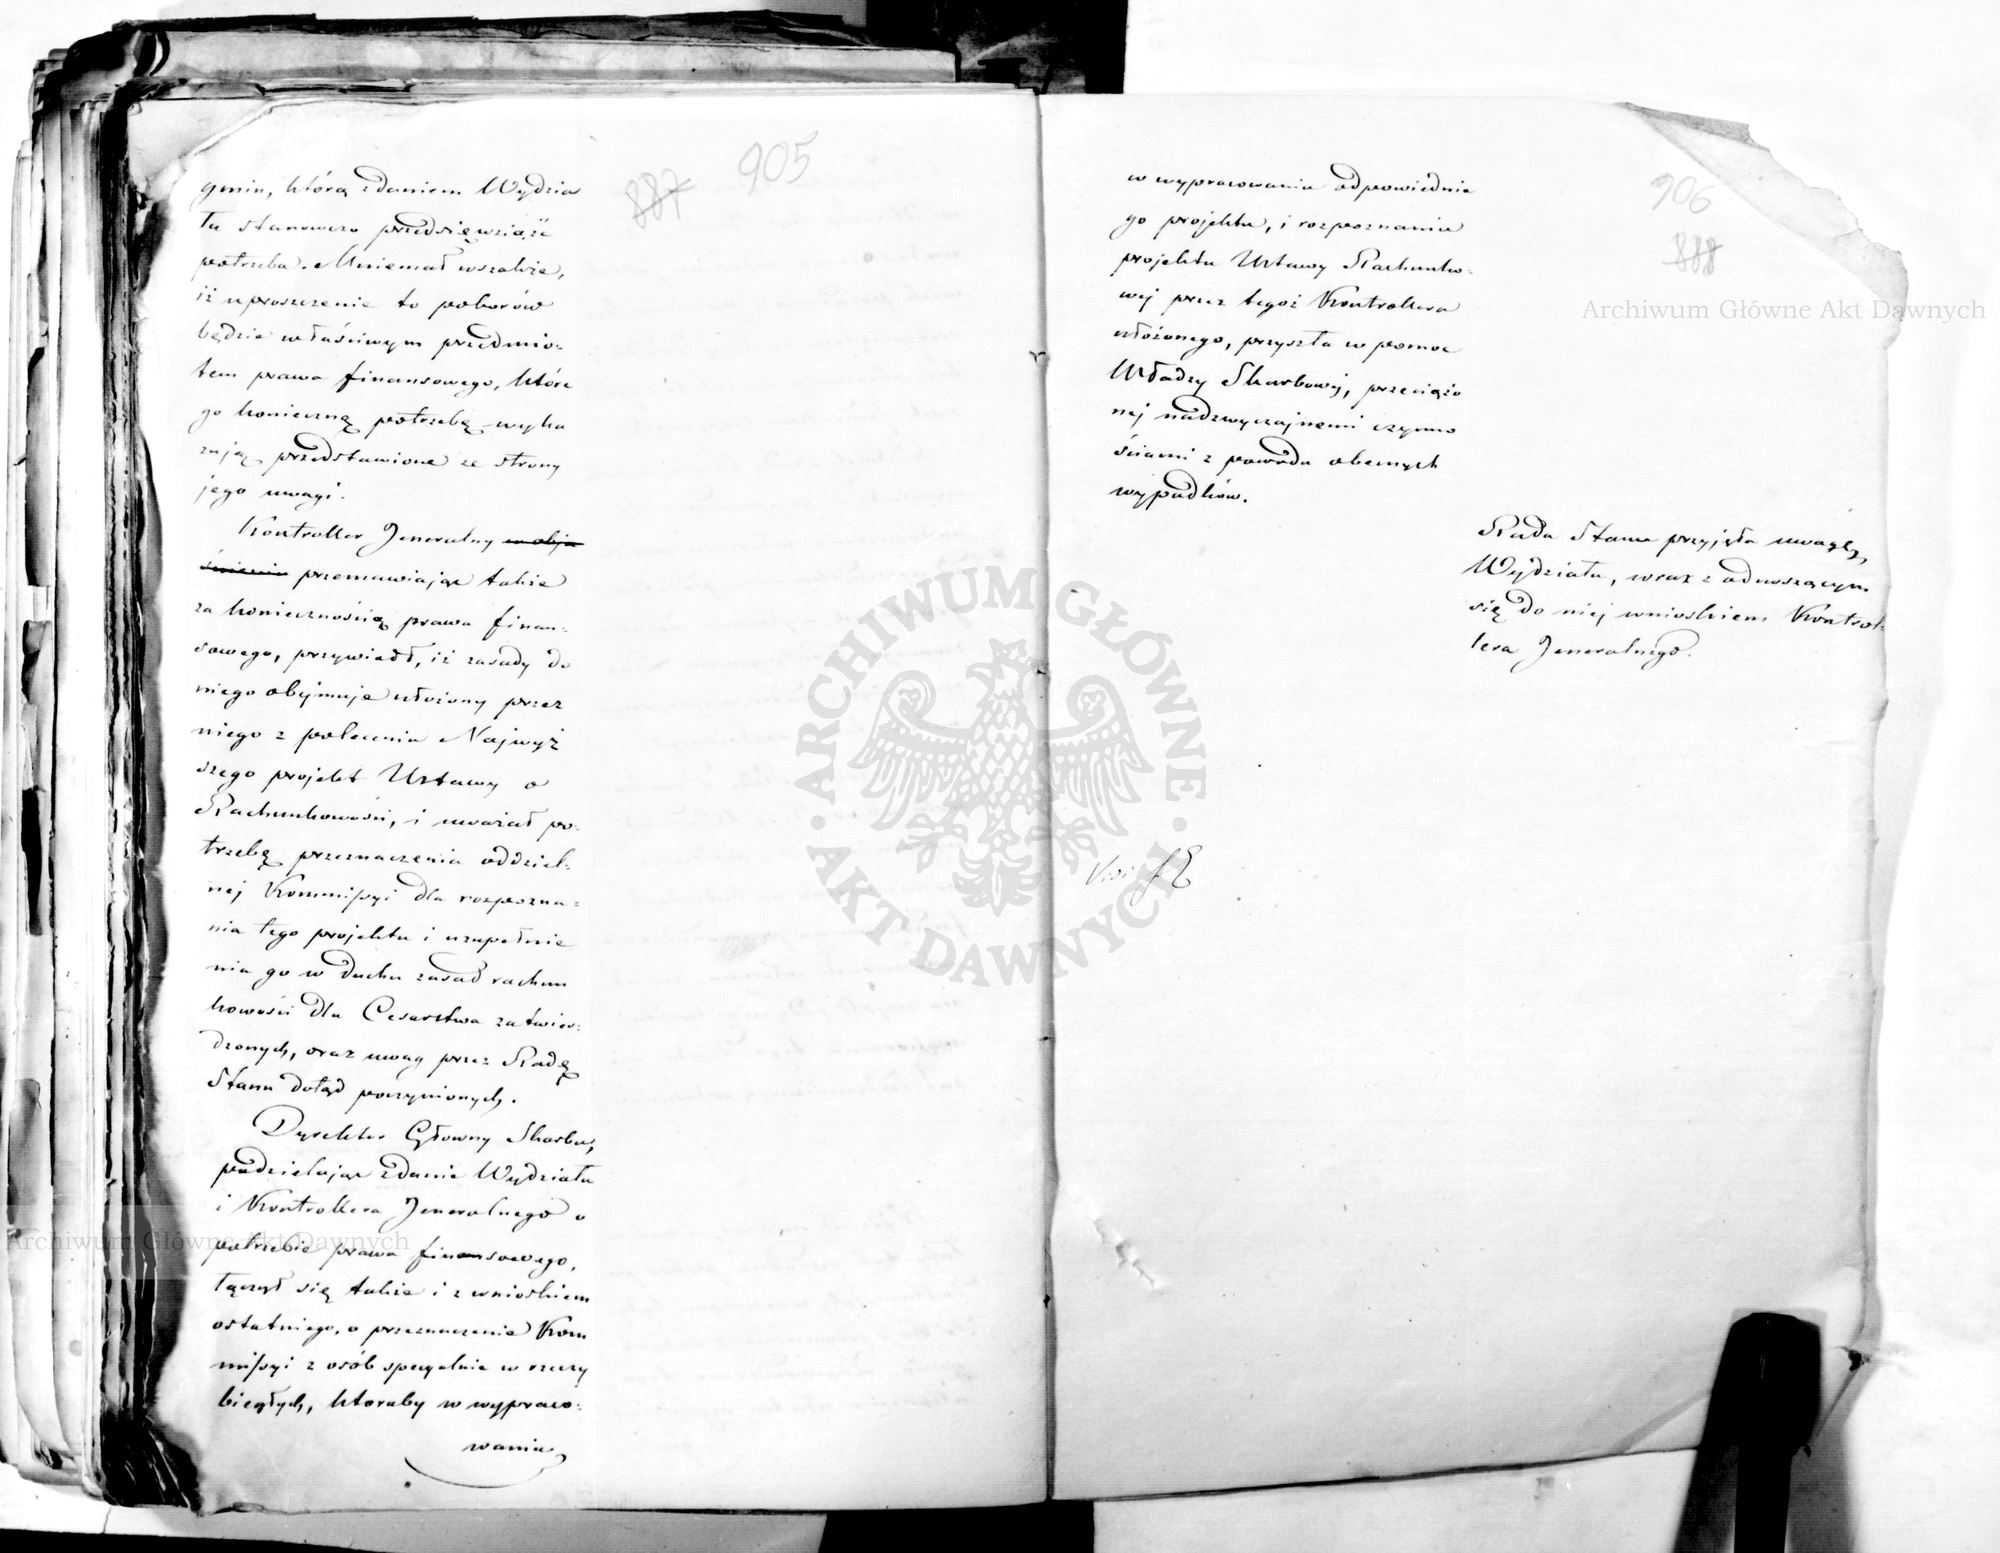 887 905
gmin, którą zdaniem Wydzia
łu stanowczo przedsięwziąść
potrzeba. Mniemał wszakże,
iż uproszczenie to poborów
będzie właściwym przedmio-
tem prawa finansowego, które
go konieczną potrzebę wyka
zują przedstawione ze strony
jego uwagi.
Kontroller Jeneralny w obja
śnieniu przemawiając także
za koniecznością prawa finan-
sowego, przywiódł, iż zasady do
niego obejmuje ułożony przez
niego z polecenia Najwyż
szego projekt Ustawy o
Rachunkowości, i uważał po-
trzebę przeznaczenia oddziel-
nej Kommissyi dla rozpozna-
nia tego projektu i uzupełnie
nia go w duchu zasad rachun
kowości dla Cesarstwa zatwier-
dzonych, oraz uwag przez Radę
Stanu dotąd poczynionych.
Dyrektor Główny Skarbu,
podzielając zdanie Wydziału
i Kontrollera Jeneralnego o
potrzebie prawa finansowego,
łączył się także i z wnioskiem
ostatniego, o przeznaczenie Kom
missyi z osób specyalnie w rzeczy
biegłych, któraby w wypraco-
waniu
906
888
w wypracowaniu odpowiednie
go projektu, i rozpoznaniu
projektu Ustawy Rachunko-
wej przez tegoż Kontrollera
ułożonego, przyszła w pomoc
Władzy Skarbowej, przeciążo
nej nadzwyczajnemi czynno
ściami z powodu obecnych
wypadków.
Rada Stanu przyjęła uwagę
Wydziału, wraz z odnoszącym
się do niej wnioskiem Kontrol-
lera Jeneralnego.
Archiwum Główne Akt Dawnych
ARCHIWUM GŁÓWNE AKT DAWNYCH
Archiwum Główne Akt Dawnych